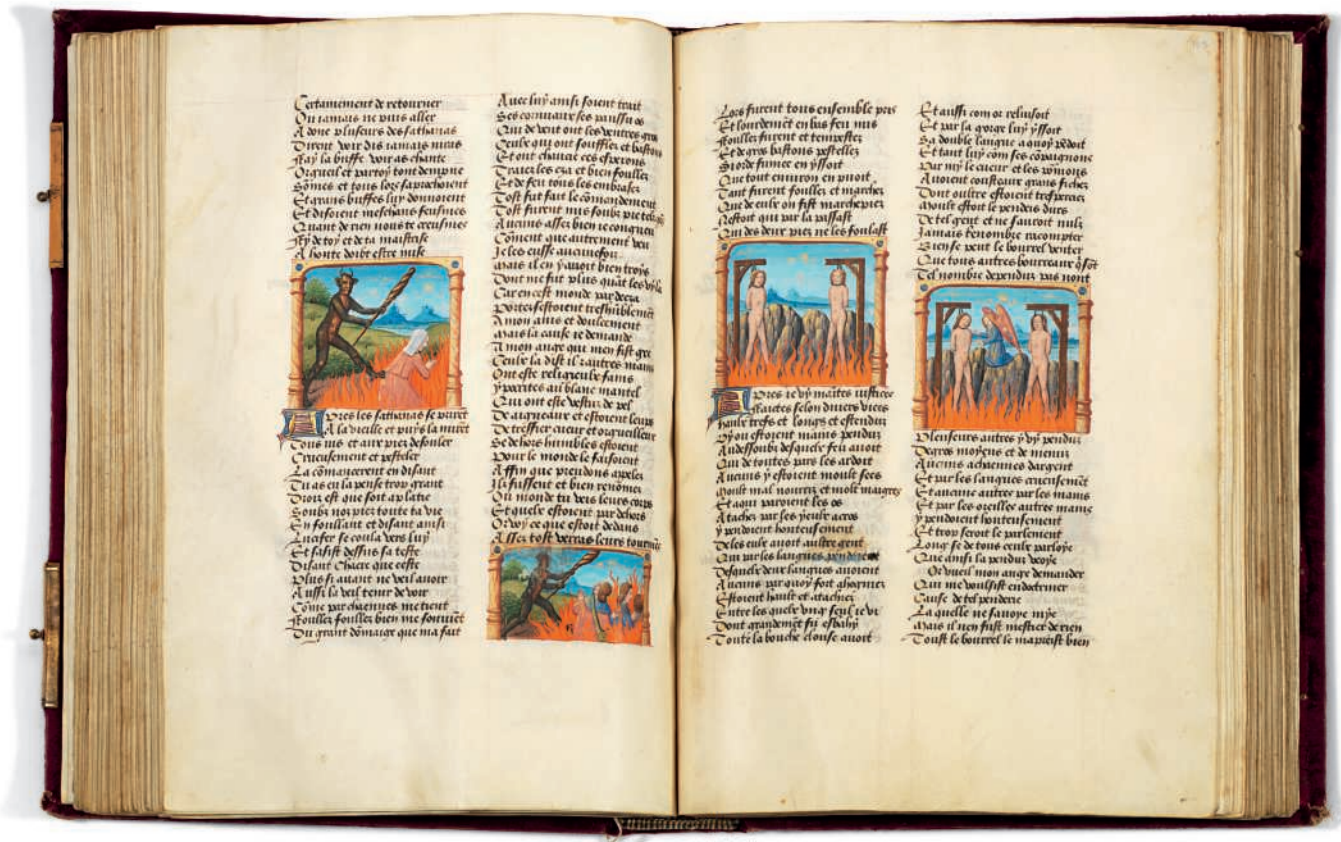 Certainement de retourner
Ou iamais ne puis aller
Adonc pluseurs des sathanas
Dirent voir dis iamais nauras
Ray la buffe voir as chante
Orgueil et par toy tout dempne
Sômes et tous lors saprocherent
Et grans buffes luy donnoient
Et disoient meschans feusmes
Quant de rien nous te creusmes
Fy de toy et de ta maistrise
A honte doibt estre mise
pres les sathanas se prirent
A la vieille et puys la mirêt
Tous ius et aux piez defouler
Crueusement et pesteler
La cômancerent en disant
Tu as en la pense trop grant
Droiz est que soit aplatie
Soubz noz piez toute ta vie
En foullant et disant ainsi
Lucifer se coula vers luy
Et saisit dessus sa teste
Disant Chiere que ceste
Plus si auant ne veil auoir
Aussi la veil tenir de voir
Côme par chaennes me tient
Foullez foullez bien me souuiêt
Du grant dômaige que ma fait
Auec luy ainsi soient trait
Ses communaux ses paussu os
Qui deuoit ont les ventres gros
Ceulx qui ont souffles et bastons
Et ont chaucie ces esperons
Traiez les cza et bien foullez
Et de feu tous les embrasez
Tost fut fait le cômendement
Tost furent mis soubz
Aucuns assez bien ie congneu
Côment que autrement veu
Je les eusse aucunefoiz
Mais il en y auoit bien troys
Dont me fut plus quât les vy la
Car en cest monde par decza
Portez sestoient treshûblemêt
A mon aduis et doulcement
Mais la cause ie demande
A mon ange qui men fist gre
Ceulx la dist il autres mains
Ont este religieulx fains
Ypocrites au blanc mantel
Qui ont este vestuz de pel
De aigneaux et estoient leups
De tresfier cueur et orgueilleux
Se dehors humbles estoient
Pour le monde le faisoient
Affin que preudons apelez
Ilz fussent et bien renômez
Ou monde tu veis leurs corps
Et quelx estoient par dehors
Or voy ce que estoit dedans
Assez tost verras leurs tourmês
Lors furent tous ensemble pris
Et lourdemêt en bas feu mis
Foullez furent et tempestez
Et de gros bastons pestellez
Si orde fumee en yssoit
Que tout enuiron en puoit
Tant furent foullez et marchez
Que de eulx on fist marchepiez
Nestoit qui par la passast
Qui des deux piez ne les foulast
pres ie vy maîtes iustices
Faites selon diuers vices
Haulx trefs et longs et estenduz
Dou estoient mains penduz
Au dessoubz desquelx feu auoit
Qui de toutes pars les ardoit
Aucuns y estoient moult secs
Moult mal nourriz et molt maigres
Et a qui paroient les os
Atachez par les yeulx acros
Y pendoient honteusement
De les eulx auoit aultre gent
Qui par les langues pendoient
Desquelx deux langues auoient
Aucuns par quoy fort aharniez
Estoient hault et atachiez
Entre les quelx vng seul ie vi
Dont grandemêt fu esbahy
Toute la bouche clouse auoit
Et aussi com or reluisoit
Et par la gorge luy yssoit
Sa double langue a quoy pêdoit
Et tant luy com ses côpaignons
Par my le cueur et les roinons
Auoient cousteaux grans fichez
Dont oultre estoient tresperciez
Moult estoit le pendeis durs
De tel gent et ne sauroit nulz
Jamais le nombre racompter
Bien se peut le bourrel venter
Que tous autres bourreaux q̃ sôt
Tel nombre de penduz pas nont
Pleuseurs autres y vy penduz
De gros moyens et de menuz
Aucuns a chaennes dargent
Et par les langues crueusemêt
Et aucuns autres par les mains
Et par les oreilles autres mains
Y pendoient honteusement
Et trop seroit le parlement
Long se de tous ceulx parloye
Que ainsi la penduz veoye
Or vueil mon ange demander
Qui me voulsist endoctriner
Cause de tel penderie
La quelle ne sauoye mye
Mais il nen fust mestier de rien
Toust le bourrel le maprist bien